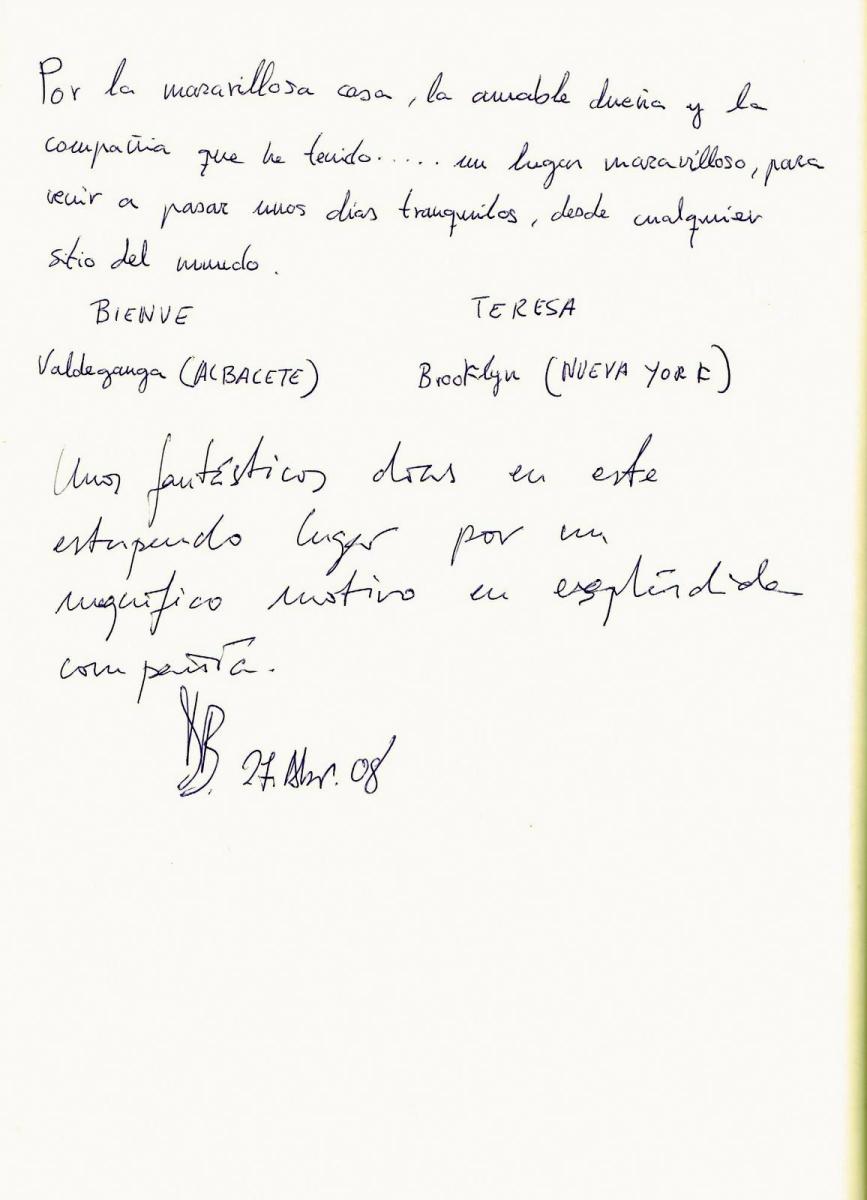 Por la maravillosa casa, la amable dueña y la
compañia que he tenido..... un lugar maravilloso, para
venir a pasar unos dias tranquilos, desde cualquier
sitio del mundo.
BIENVE TERESA
Valdeganga (ALBACETE) Brooklyn (NUEVA YORK)
Unos fantásticos días en este
estupendo lugar por un
magnífico motivo en espléndida
compañía.
27. Abr. 08